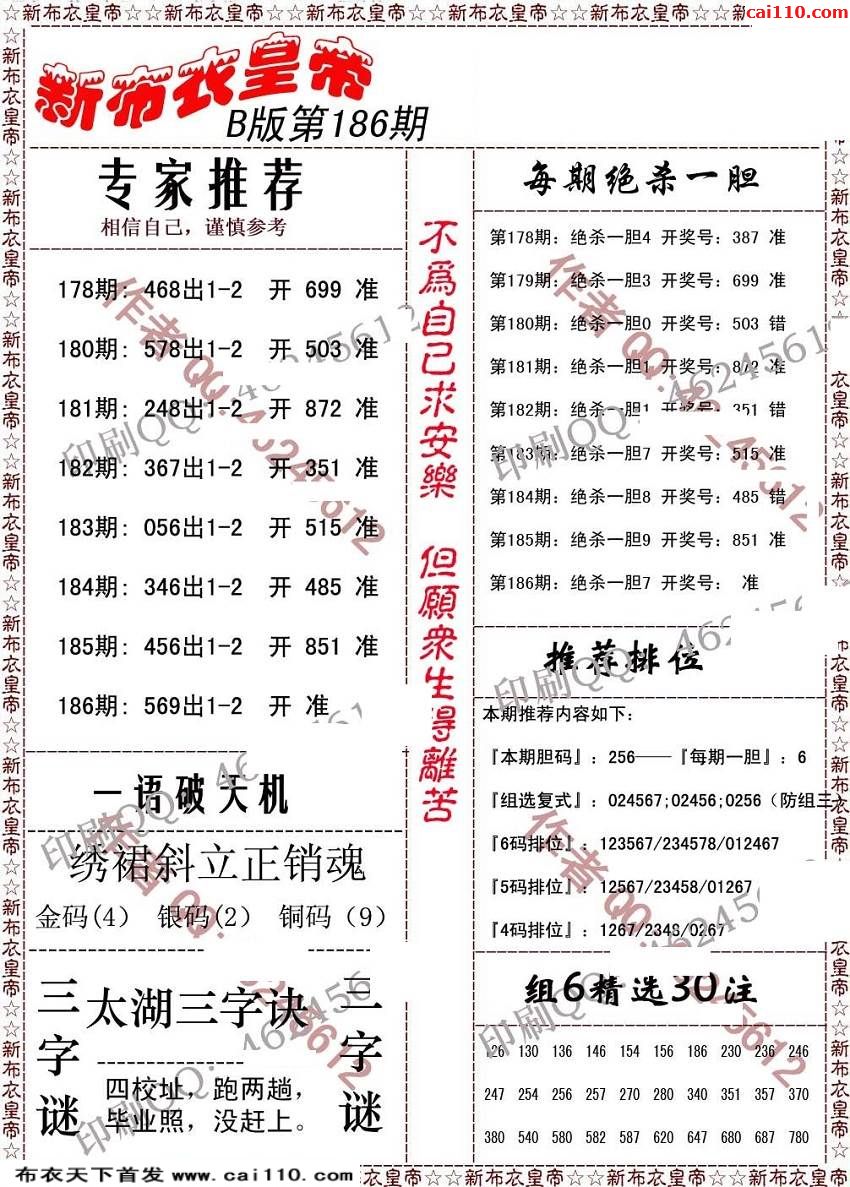 ☆新布衣皇帝☆☆新布衣皇帝☆☆新布衣皇帝☆☆新布衣皇帝☆☆新布衣皇帝☆☆新布衣皇帝☆☆新
cai110.com
新布衣皇帝
B版第186期
专家推荐
相信自己，谨慎参考
178期: 468出1-2 开 699 准
180期: 578出1-2 开 503 准
181期: 248出1-2 开 872 准
182期: 367出1-2 开 351 准
183期: 056出1-2 开 515 准
184期: 346出1-2 开 485 准
185期: 456出1-2 开 851 准
186期: 569出1-2 开 准
一语破天机
绣裙斜立正销魂
金码(4) 银码(2) 铜码（9）
三字谜
太湖三字诀
四校址，跑两趟，
毕业照，没赶上。
三字谜
不為自己求安樂 但願衆生得離苦
每期绝杀一胆
第178期: 绝杀一胆4 开奖号: 387 准
第179期: 绝杀一胆3 开奖号: 699 准
第180期: 绝杀一胆0 开奖号: 503 错
第181期: 绝杀一胆1 开奖号: 872 准
第182期: 绝杀一胆1 开奖号: 351 错
第183期: 绝杀一胆7 开奖号: 515 准
第184期: 绝杀一胆8 开奖号: 485 错
第185期: 绝杀一胆9 开奖号: 851 准
第186期: 绝杀一胆7 开奖号: 准
推荐排位
本期推荐内容如下:
『本期胆码』: 256——『每期一胆』: 6
『组选复式』: 024567;02456;0256（防组三）
『6码排位』: 123567/234578/012467
『5码排位』: 12567/23458/01267
『4码排位』: 1267/2348/0267
组6精选30注
126 130 136 146 154 156 186 230 236 246
247 254 256 257 270 280 340 351 357 370
380 540 580 582 587 620 647 680 687 780
作者QQ:46245612
印刷QQ:46245612
布衣天下首发 www.cai110.com
衣皇帝☆☆新布衣皇帝☆☆新布衣皇帝☆☆新布衣皇帝☆